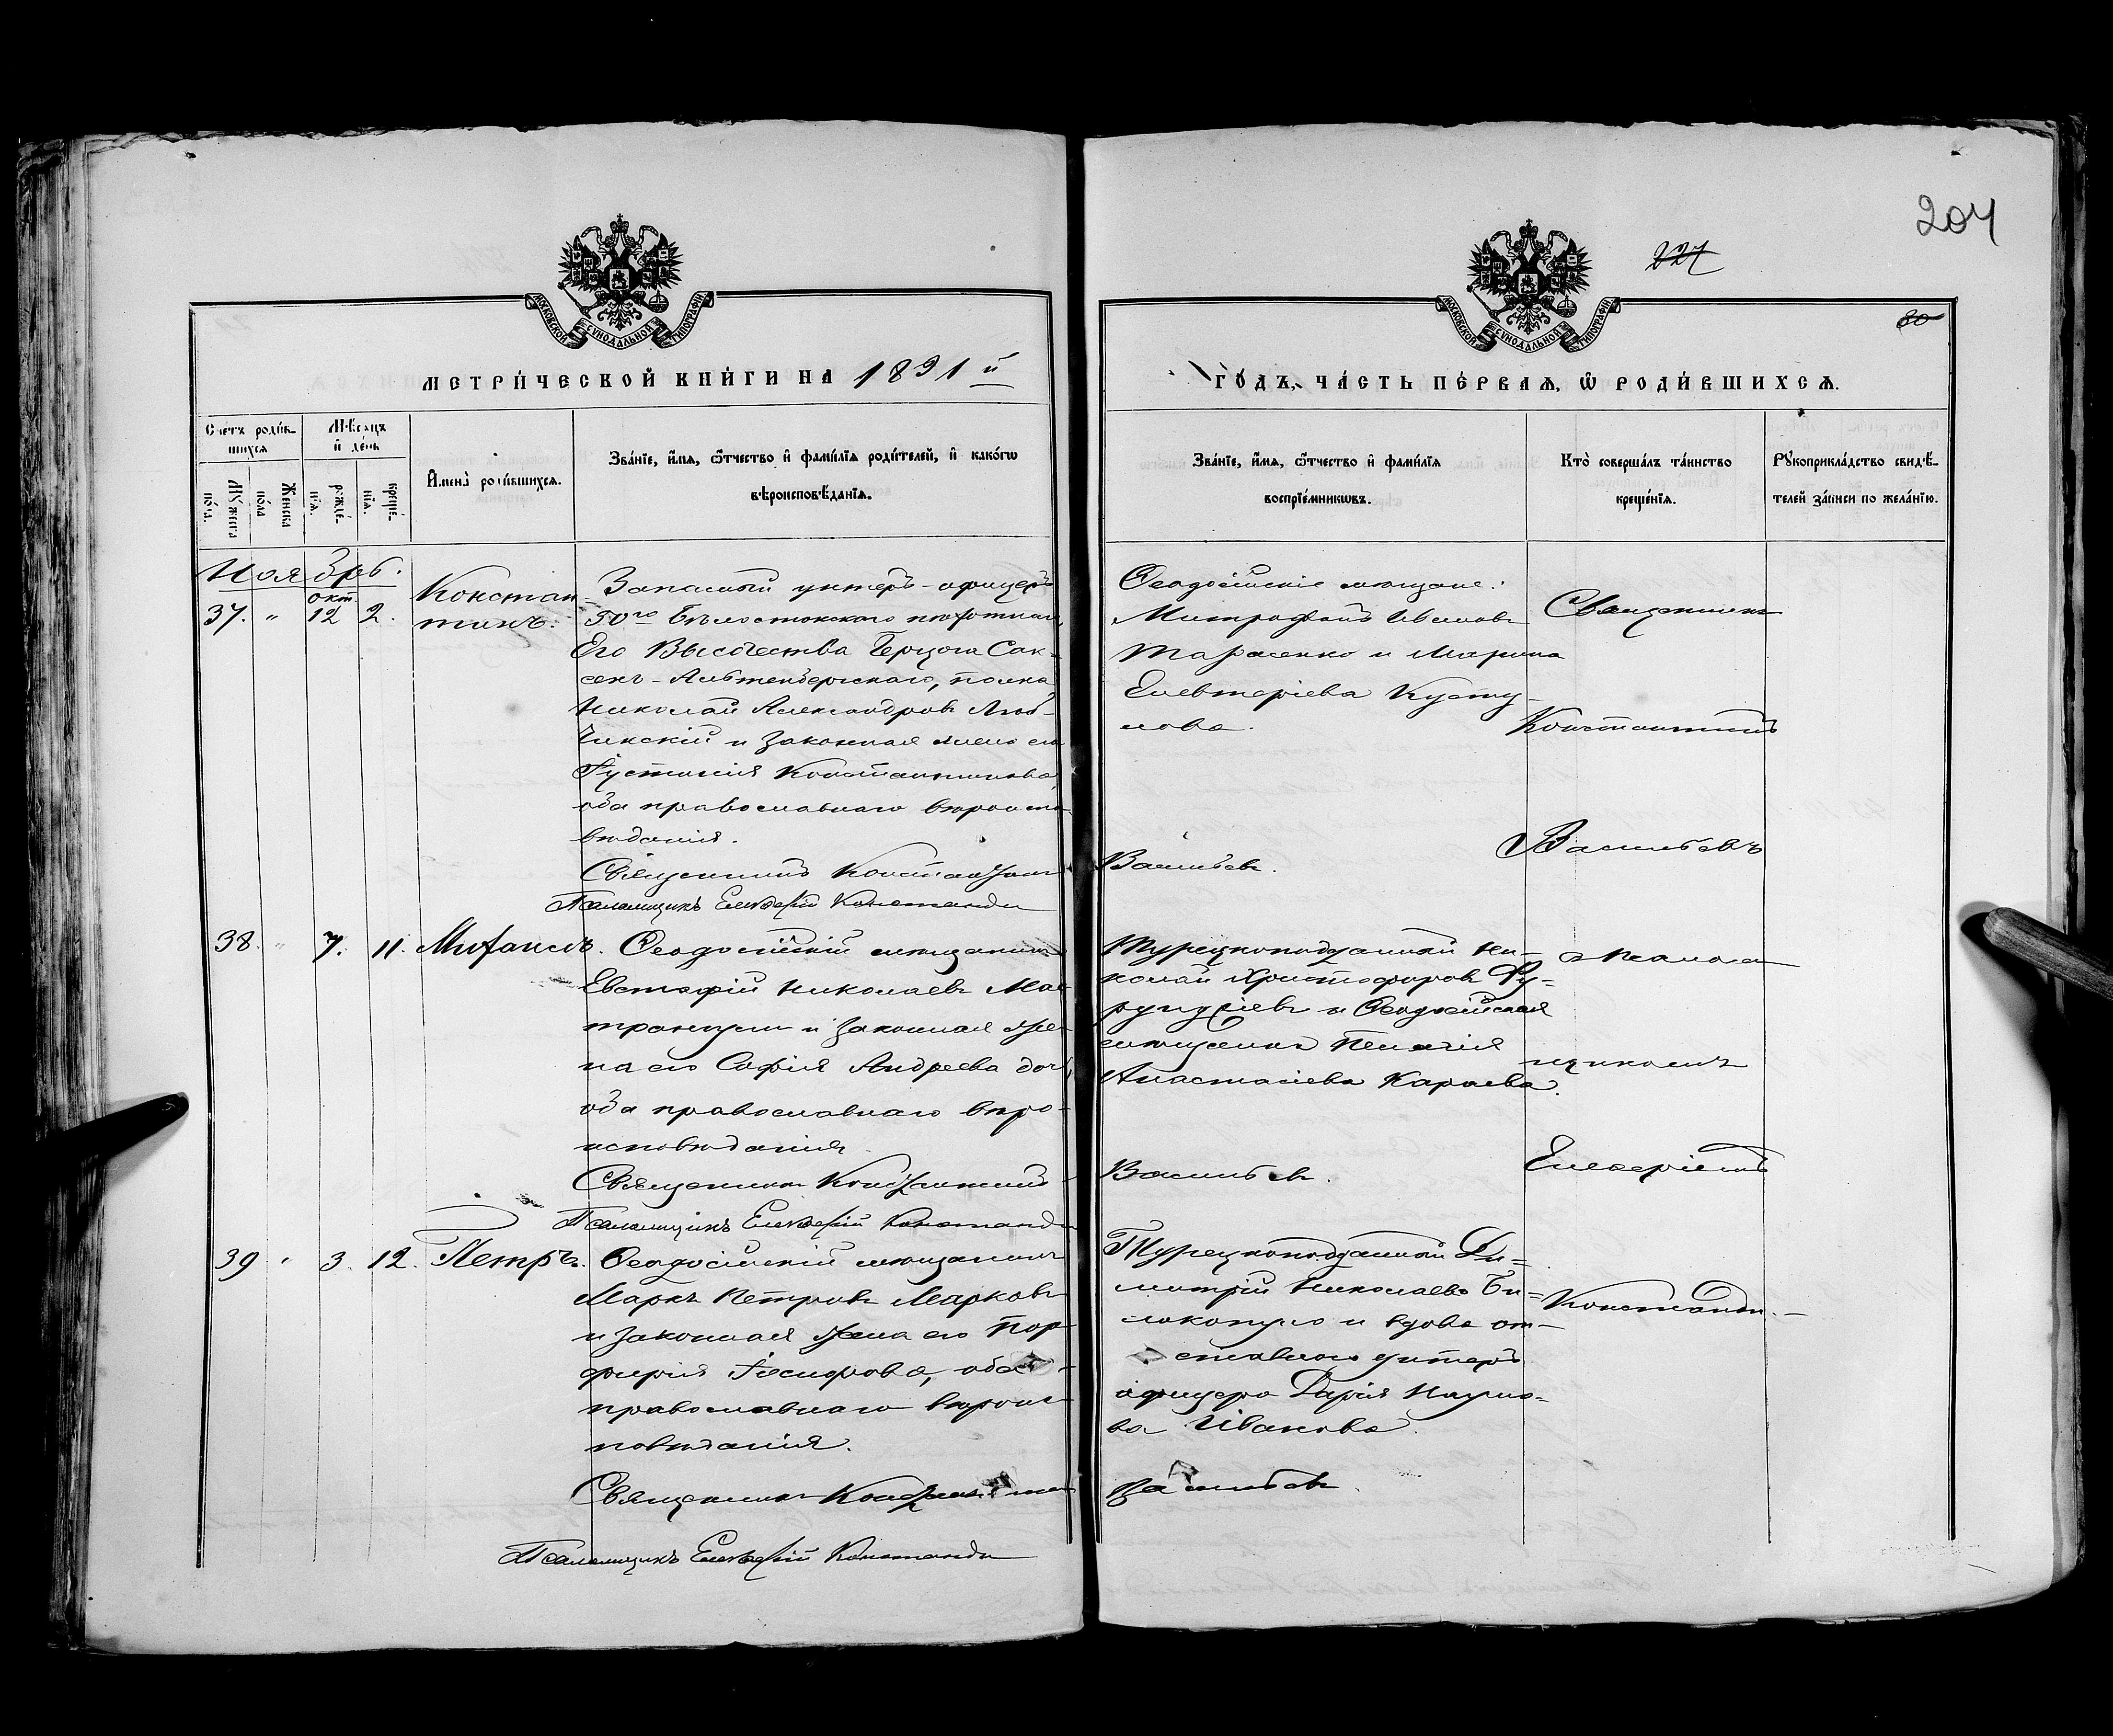 204
227
80
МОСКОВСКОЙ СѴНОДАЛЬНОЙ ТИПОГРАФІИ
МОСКОВСКОЙ СѴНОДАЛЬНОЙ ТИПОГРАФІИ
МЕТРИ́ЧЕСКОЙ КНИ́ГИ НА 1891й
ГО́ДЪ, ЧА́СТЬ ПЕ́РВАѦ, Ѡ҆ РОДИ́ВШИХСѦ.
Сче́тъ роди́в-
шихсѧ
Мѣ́сѧцъ
и҆ де́нь
Му́жеска
по́ла.
Же́нска
по́ла
рожде́-
нїѧ.
креще́-
нїѧ.
И҆мена̀ роди́вшихсѧ.
Зва́нїе, и҆́мѧ, ѻ҆́тчество и҆ фами́лїѧ роди́телей, и҆ како́гѡ
вѣроисповѣ́данїѧ.
Зва́нїе, и҆́мѧ, ѻ҆́тчество и҆ фами́лїѧ
воспрїе́мникѡвъ.
Кто̀ соверша́лъ та́инство
креще́нїѧ.
Рꙋкоприкла́дство свидѣ́-
телей за́писи по жела́нїю.
Ноябрь.
37. " окт. 12 2.
Констан
тинъ.
Запасный унтеръ-офицеръ
50го Бѣлостокскаго пѣхотнаго,
Его Высочества Герцога Сак-
сенъ-Альтенбургскаго, полка
Николай Александровъ Люб-
чинскій и законная жена его
Іустинія Константинова
оба православнаго вѣроиспо-
вѣданія.
Священникъ Константинъ
Псаломщикъ Елевѳерій Константи
Ѳеодосійскіе мѣщане:
Митрофанъ Ивановъ
Тарасенко и Марина
Елевтеріева Кусту-
лова.
Васильевъ.
Священникъ
Константинъ
Васильевъ
38. " 7. 11. Михаилъ.
Ѳеодосійскій мѣщанинъ
Евстафій Николаевъ Ма
и законная же
на его Софія Андреева дочь,
оба православнаго вѣро-
исповѣданія.
Священникъ Константинъ
Псаломщикъ Елевѳерій Константи
Турецкоподданный Ни-
колай Христофоровъ
и Ѳеодосійская
мѣщанка Пелагія
Анастасіева Караева.
Васильевъ.
съ псалом
щикомъ
Елевѳеріемъ
39 " 3. 12. Петръ.
Ѳеодосійскій мѣщанинъ
Маркъ Петровъ Марковъ
и законная жена его Пор
фирія Іосифова, оба
православнаго вѣроис
повѣданія.
Священникъ Константинъ
Псаломщикъ Елевѳерій Константи
Турецкоподданный Ди-
митрій Николаевъ
и вдова от-
ставнаго унтеръ
офицера Дарія Наумо-
ва Иванова.
Васильевъ.
Константи.